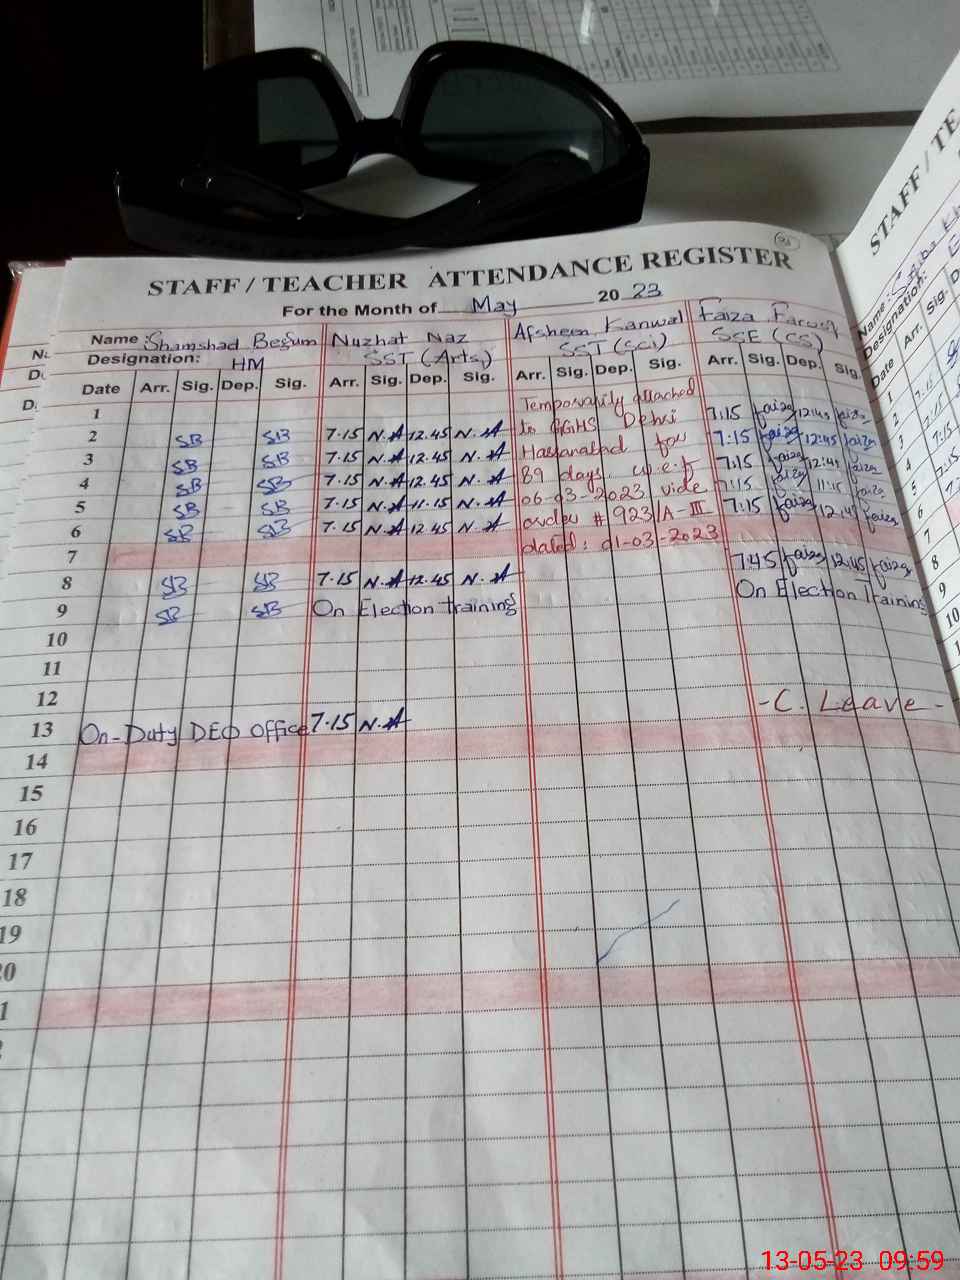 STAFF / TEACHER ATTENDANCE REGISTER
For the Month of May 2023
Name Shamshad Begum Nuzhat Naz Afsheen Kanwal Faiza Farooq
Designation: HM SST (Arts) SST (Sci) SSE (CS)
Date Arr. Sig. Dep. Sig. Arr. Sig. Dep. Sig. Arr. Sig. Dep. Sig. Arr. Sig. Dep. Sig.
1 Temporarily attached
2 SB SB 7.15 N.A 12.45 N.A to GGHS Dehri 7:15 faiza 12:45 faiza
3 SB SB 7.15 N.A 12.45 N.A Hassanabad for 7:15 faiza 12:45 faiza
4 SB SB 7.15 N.A 12.45 N.A 89 days w.e.f 7:15 faiza 12:45 faiza
5 SB SB 7.15 N.A 11.15 N.A 06-03-2023 vide 7:15 faiza 11:15 faiza
6 SB SB 7.15 N.A 12.45 N.A order # 923/A-III 7:15 faiza 12:45 faiza
7 dated: 01-03-2023
8 SB SB 7.15 N.A 12.45 N.A 7:45 faiza 12:45 faiza
9 SB SB On Election training On Election Training
10
11
12
13 On-Duty DEO Office 7.15 N.A -C. Leave-
14
15
16
17
18
19
20
STAFF / TE
Name:
Designation:
Date Arr. Sig.
1
2
3
4
5
6
7
8
9
10
13-05-23 09:59